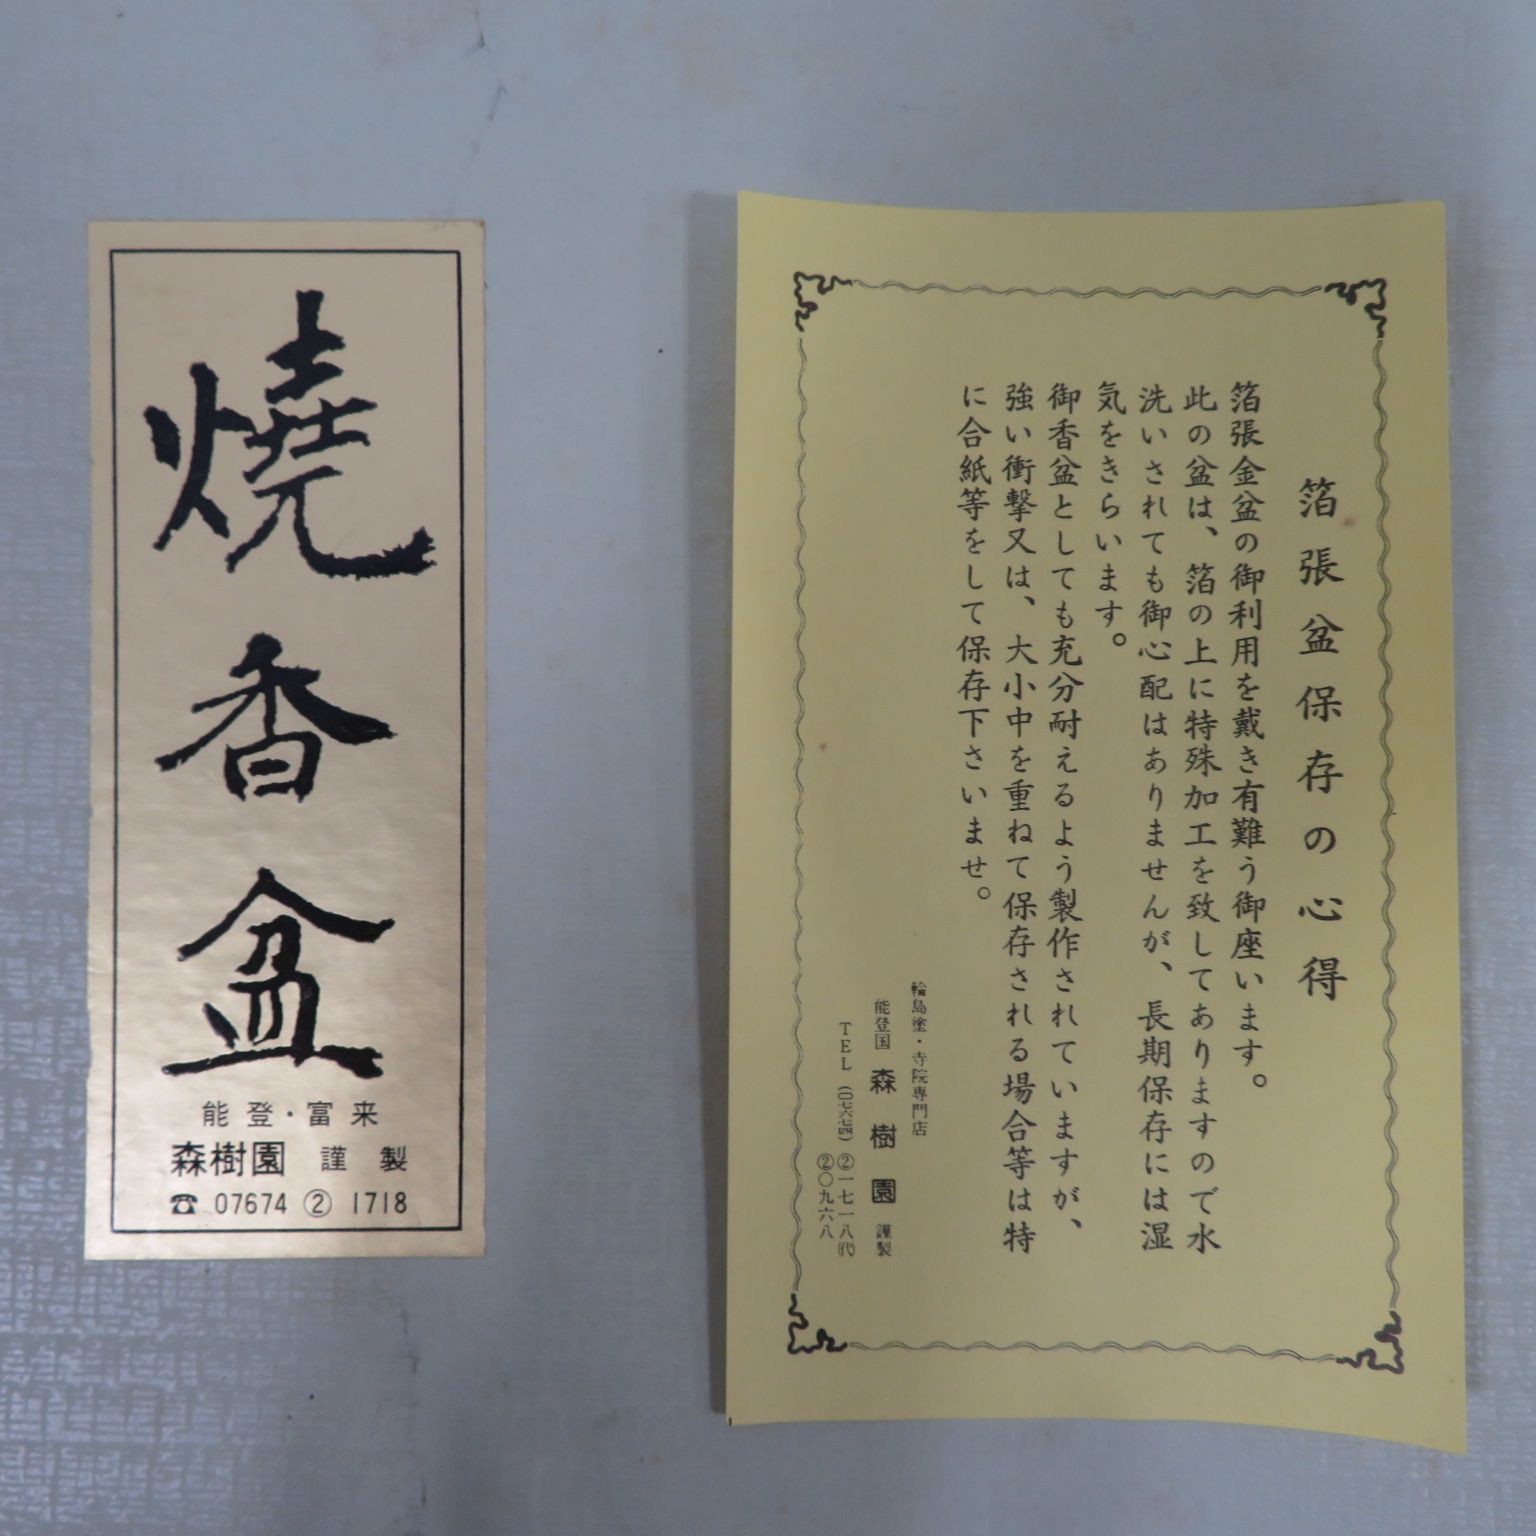 燒香盆
能登・富来
森樹園 謹製
☎ 07674 ② 1718
箔張盆保存の心得
箔張金盆の御利用を戴き有難う御座います。
此の盆は、箔の上に特殊加工を致してありますので水
洗いされても御心配はありませんが、長期保存には湿
気をきらいます。
御香盆としても充分耐えるよう製作されていますが、
強い衝撃又は、大小中を重ねて保存される場合等は特
に合紙等をして保存下さいませ。
輪島塗・寺院専門店
能登国 森樹園 謹製
TEL (〇七六七四) ②一七一八(代)
②〇九六八